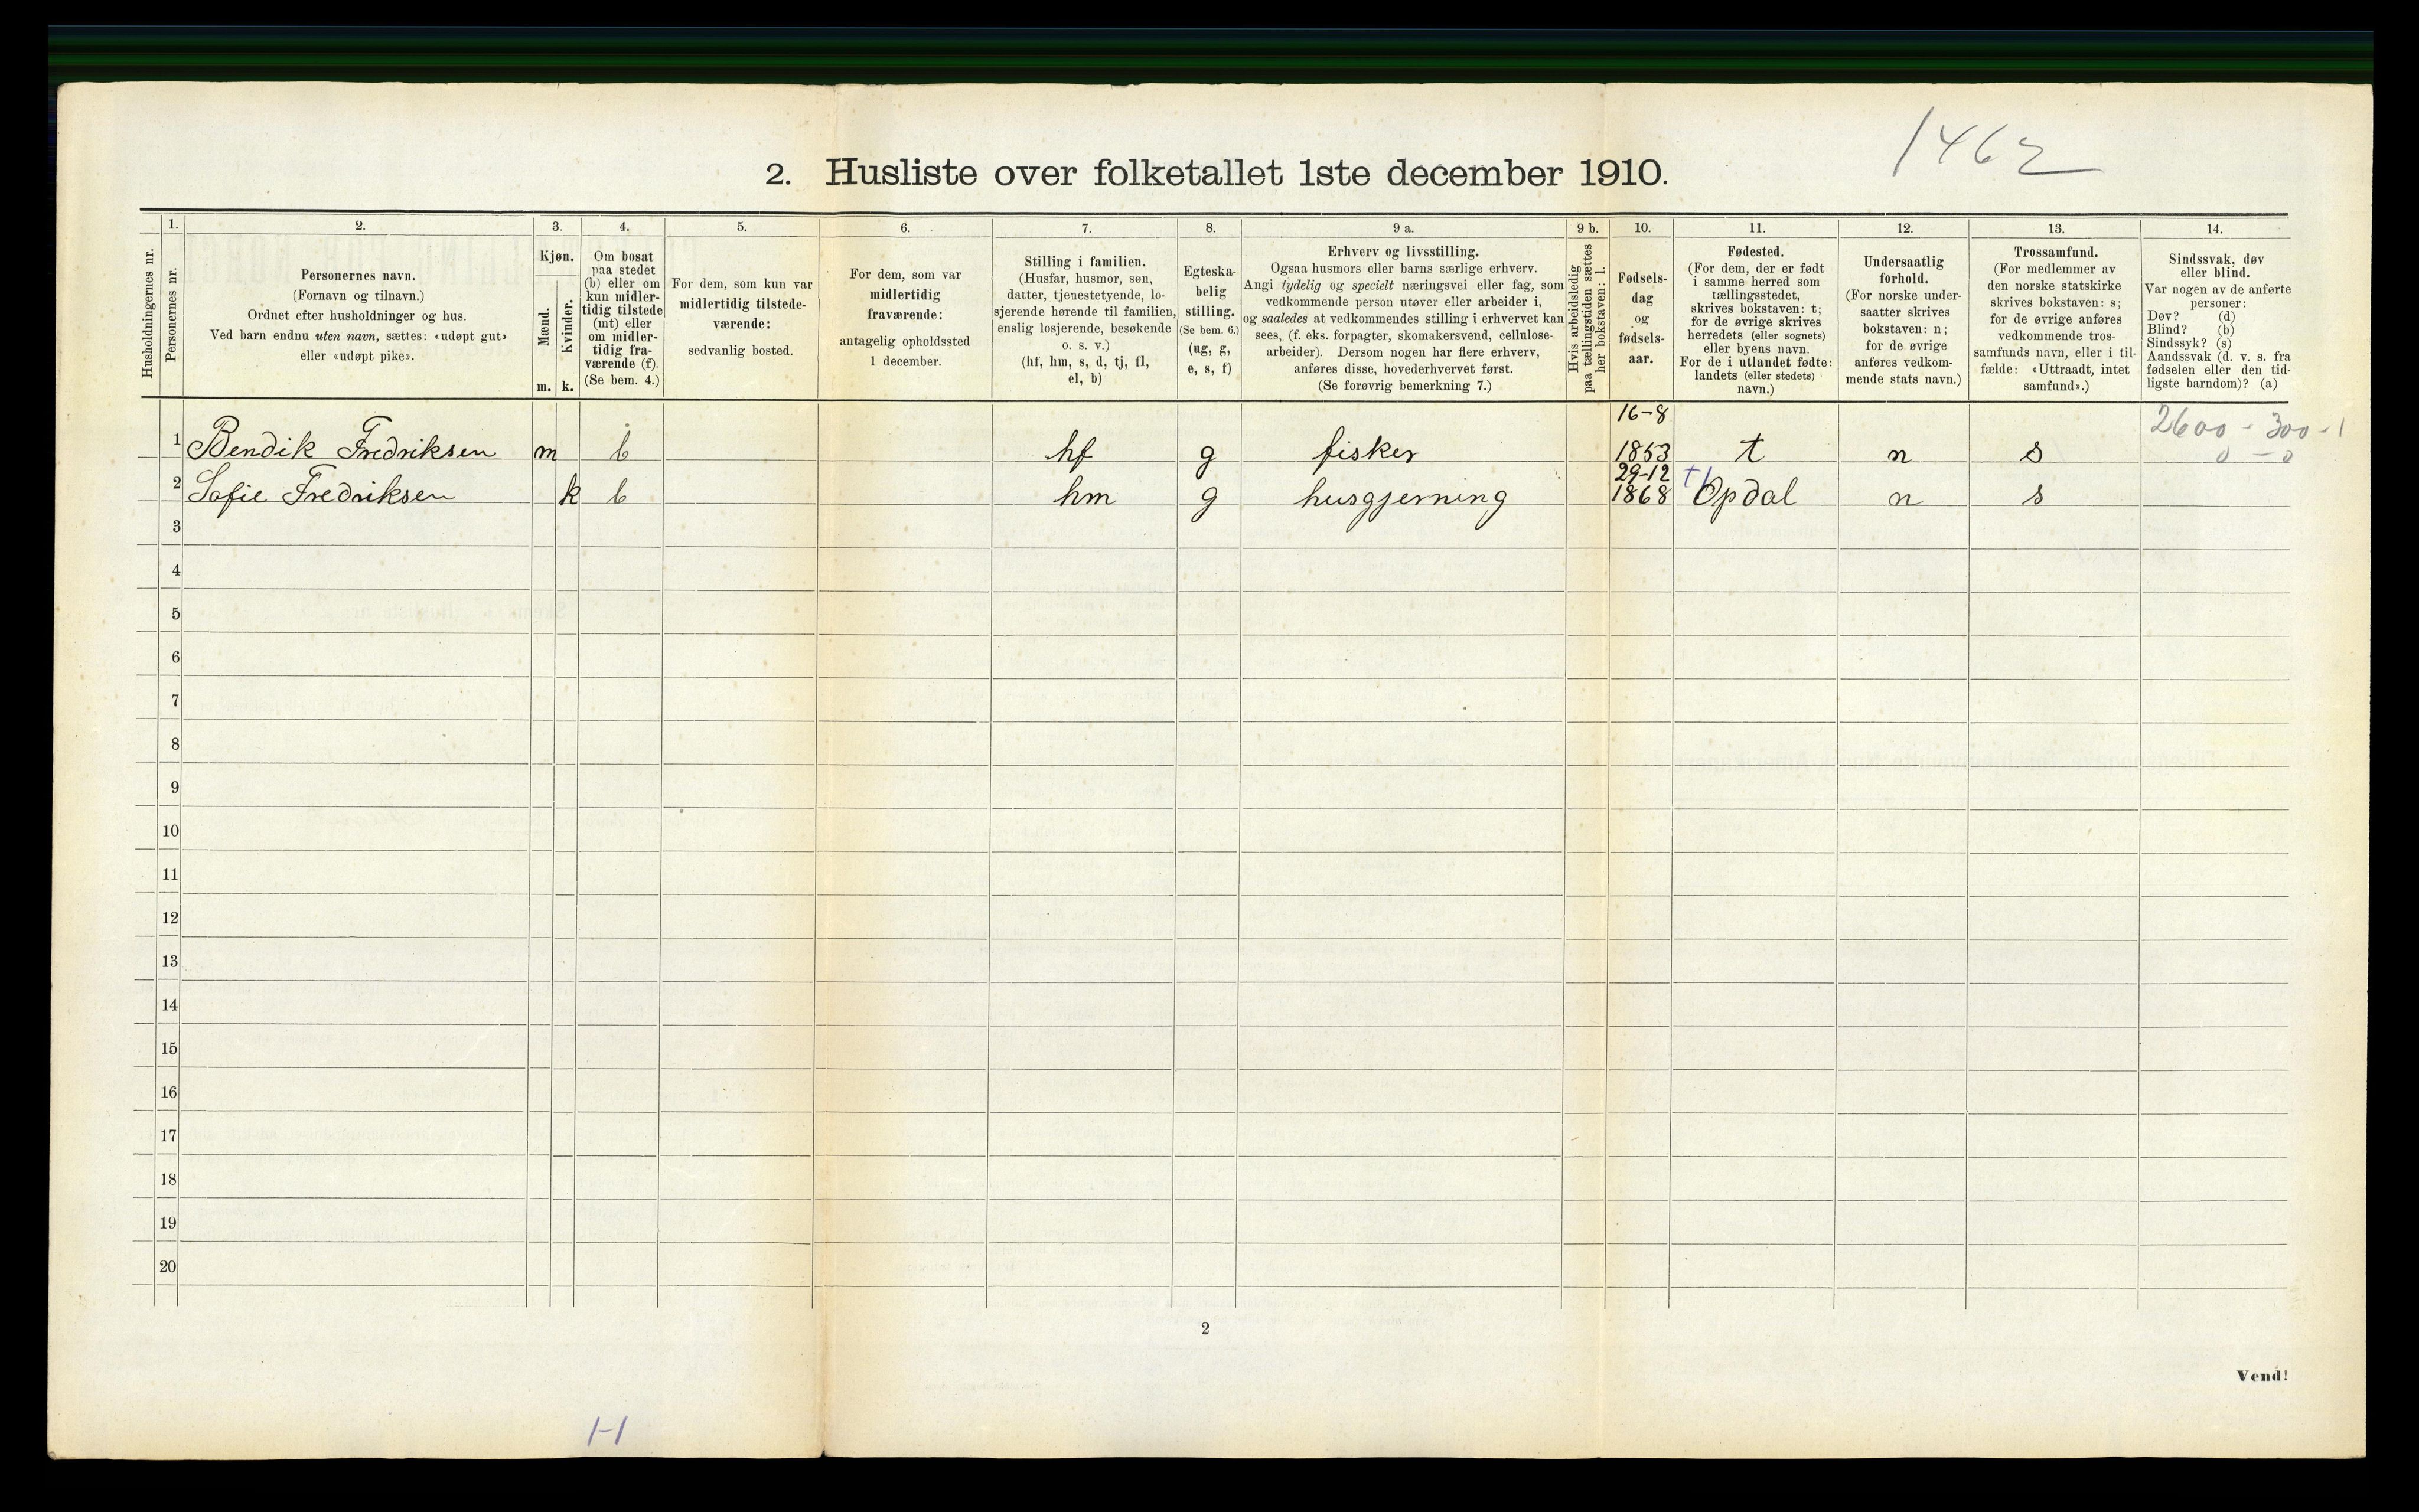 1462
2. Husliste over folketallet 1ste december 1910.
Husholdningernes nr.
1.
Personernes nr.
2.
Personernes navn.
(Fornavn og tilnavn.)
Ordnet efter husholdninger og hus.
Ved barn endnu uten navn, sættes: «udøpt gut»
eller «udøpt pike».
3.
Kjøn.
Mænd.
Kvinder.
m. k.
4.
Om bosat
paa stedet
(b) eller om
kun midler-
tidig tilstede
(mt) eller
om midler-
tidig fra-
værende (f).
(Se bem. 4.)
5.
For dem, som kun var
midlertidig tilstede-
værende:
sedvanlig bosted.
6.
For dem, som var
midlertidig
fraværende:
antagelig opholdssted
1 december.
7.
Stilling i familien.
(Husfar, husmor, søn,
datter, tjenestetyende, lo-
sjerende hørende til familien,
enslig losjerende, besøkende
o. s. v.)
(hf, hm, s, d, tj, fl,
el, b)
8.
Egteska-
belig
stilling.
(Se bem. 6.)
(ug, g,
e, s, f)
9 a.
Erhverv og livsstilling.
Ogsaa husmors eller barns særlige erhverv.
Angi tydelig og specielt næringsvei eller fag, som
vedkommende person utøver eller arbeider i,
og saaledes at vedkommendes stilling i erhvervet kan
sees, (f. eks. forpagter, skomakersvend, cellulose-
arbeider). Dersom nogen har flere erhverv,
anføres disse, hovederhvervet først.
(Se forøvrig bemerkning 7.)
9 b.
Hvis arbeidsledig
paa tællingstiden sættes
her bokstaven: l.
10.
Fødsels-
dag
og
fødsels-
aar.
11.
Fødested.
(For dem, der er født
i samme herred som
tællingsstedet,
skrives bokstaven: t;
for de øvrige skrives
herredets (eller sognets)
eller byens navn.
For de i utlandet fødte:
landets (eller stedets)
navn.)
12.
Undersaatlig
forhold.
(For norske under-
saatter skrives
bokstaven: n;
for de øvrige
anføres vedkom-
mende stats navn.)
13.
Trossamfund.
(For medlemmer av
den norske statskirke
skrives bokstaven: s;
for de øvrige anføres
vedkommende tros-
samfunds navn, eller i til-
fælde: «Uttraadt, intet
samfund».)
14.
Sindssvak, døv
eller blind.
Var nogen av de anførte
personer:
Døv? (d)
Blind? (b)
Sindssyk? (s)
Aandssvak (d. v. s. fra
fødselen eller den tid-
ligste barndom)? (a)
16-8 2600 - 300 - 1
1 Bendik Fredriksen m b hf g fisker 1853 t n s 0 - 0
29-12
2 Sofie Fredriksen k b hm g husgjerning 1868 Opdal n s
3
4
5
6
7
8
9
10
11
12
13
14
15
16
17
18
19
20
2
Vend!